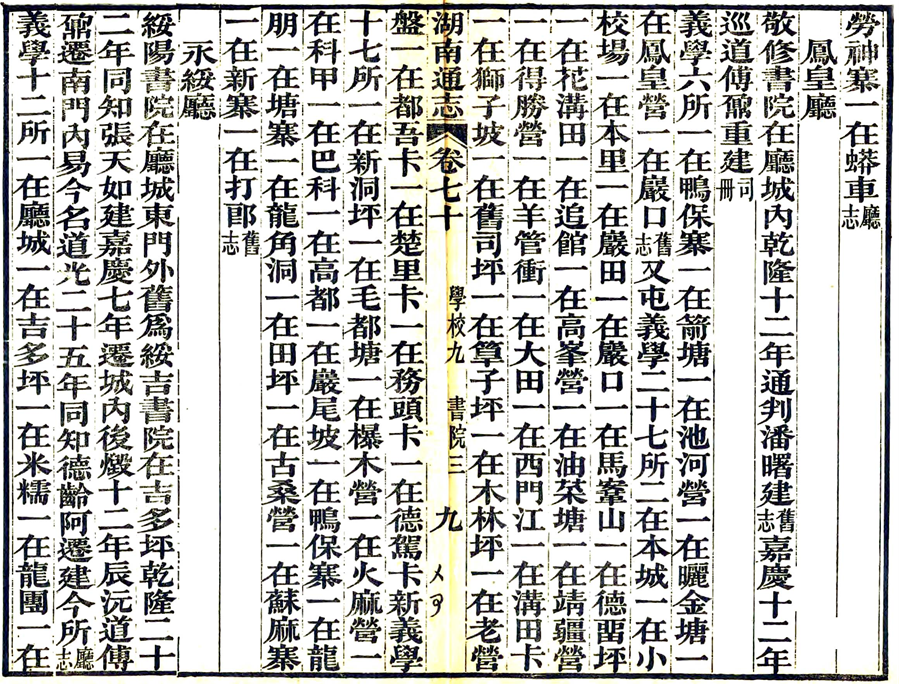 勞神寨一在蟒車廳志
鳳皇廳
敬修書院在廳城內乾隆十二年通判潘曙建舊志嘉慶十二年
巡道傅鼐重建司冊
義學六所一在鴨保寨一在箭塘一在池河營一在曬金塘一
在鳳皇營一在巖口舊志又屯義學二十七所二在本城一在小
校場一在本里一在巖田一在巖口一在馬鞌山一在德畱坪
一在花溝田一在追館一在高峯營一在油菜塘一在靖疆營
一在得勝營一在羊管衝一在大田一在西門江一在溝田卡
一在獅子坡一在舊司坪一在箄子坪一在木林坪一在老營
湖南通志 卷七十 學校九 書院三 九
盤一在都吾卡一在楚里卡一在務頭卡一在德駕卡新義學
十七所一在新洞坪一在毛都塘一在欅木營一在火麻營一
在科甲一在巴科一在高都一在巖尾坡一在鴨保寨一在龍
朋一在塘寨一在龍角洞一在田坪一在古桑營一在蘇麻寨
一在新寨一在打郎舊志
永綏廳
綏陽書院在廳城東門外舊爲綏吉書院在吉多坪乾隆二十
二年同知張天如建嘉慶七年遷城內後燬十二年辰沅道傅
鼐遷南門內易今名道光二十五年同知德齡阿遷建今所廳志
義學十二所一在廳城一在吉多坪一在米糯一在龍團一在